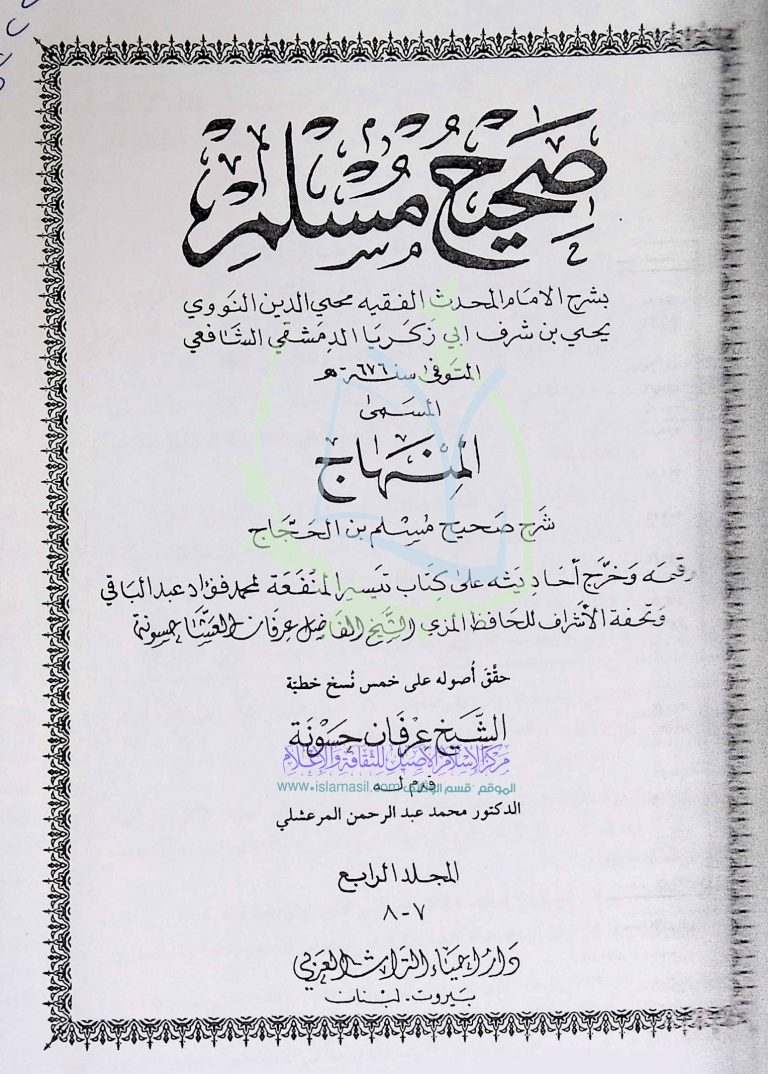 صَحِيحُ مُسْلِم
بشرح الامام المحدث الفقيه محيي الدين النووي
يحيى بن شرف ابي زكريا الدمشقي الشافعي
المتوفى سنة ٦٧٦ هـ
المسمى
المِنهَاج
شرح صحيح مسلم بن الحجاج
رقمه وخرّج أحاديثه على كتاب تيسير المنفعة لمحمد فؤاد عبد الباقي
وتحفة الأشراف للحافظ المزي الشيخ الفاضل عرفان العشا حسونة
حقّق أصوله على خمس نسخ خطيّة
الشيخ عرفان حسونة
مركز الإسلام الأصيل للثقافة والإعلام
قدم له
www.islamasil.com الموقع - قسم
الدكتور محمد عبد الرحمن المرعشلي
المجلد الرابع
٧-٨
دار احياء التراث العربي
بيروت - لبنان